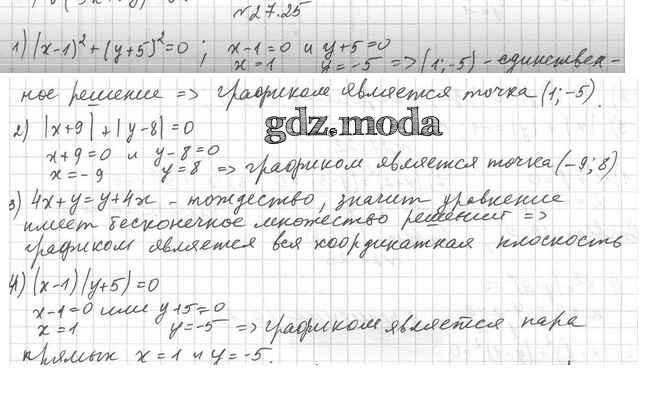 №27.25
1) (x-1)²+(y+5)²=0; x-1=0 и y+5=0
x=1 y=-5 => (1;-5) - единствен-
ное решение => графиком является точка (1;-5).
2) |x+9|+|y-8|=0
gdz.moda
x+9=0 и y-8=0
x=-9 y=8 => графиком является точка (-9;8)
3) 4x+y=y+4x - тождество, значит уравнение
имеет бесконечное множество решений =>
графиком является вся координатная плоскость
4) (x-1)(y+5)=0
x-1=0 или y+5=0
x=1 y=-5 => графиком является пара
прямых x=1 и y=-5.